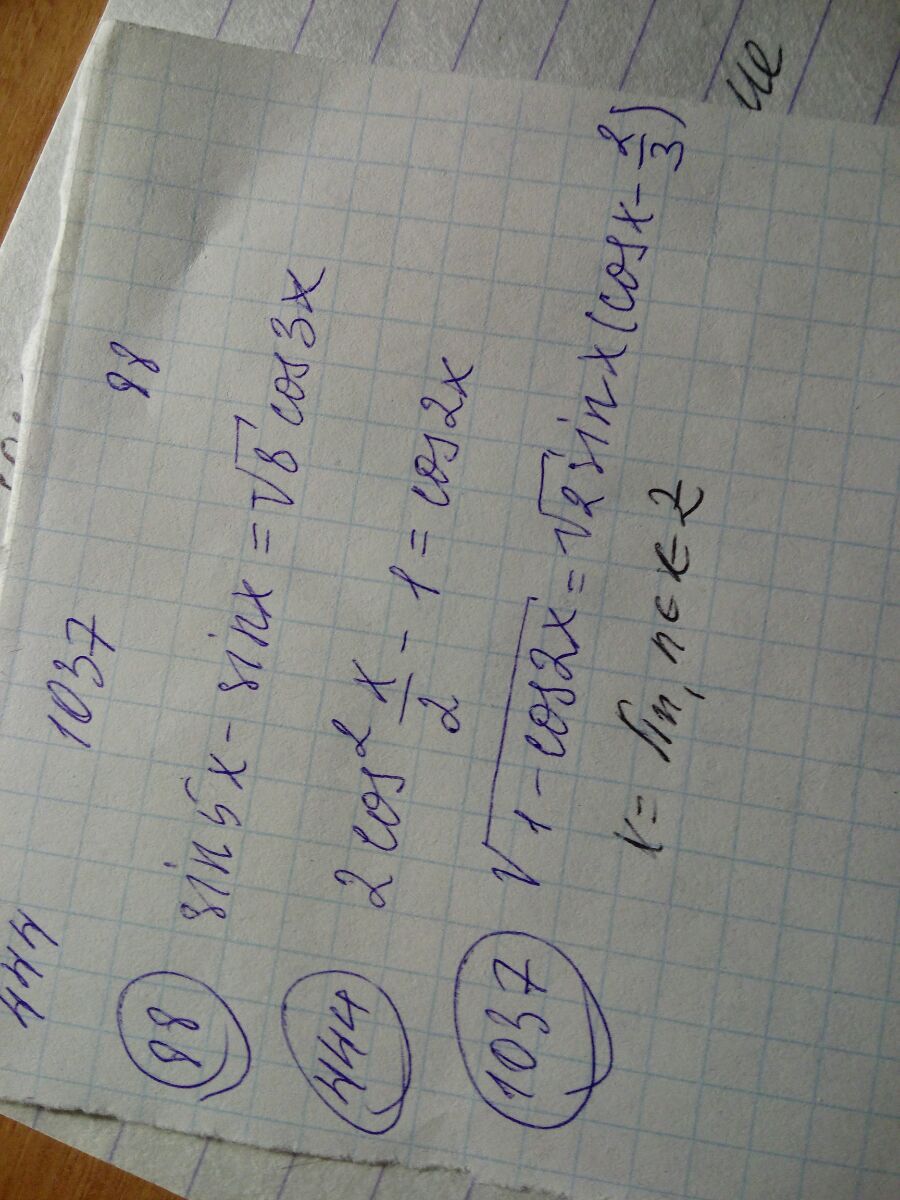 444 1037 98
98 sin5x - sinx = √8 cos3x
444 2cos² x/2 - 1 = cos2x
1037 √(1 - cos2x) = √2 sin x (cos x - 2/3)
x = πn, n ∈ Z